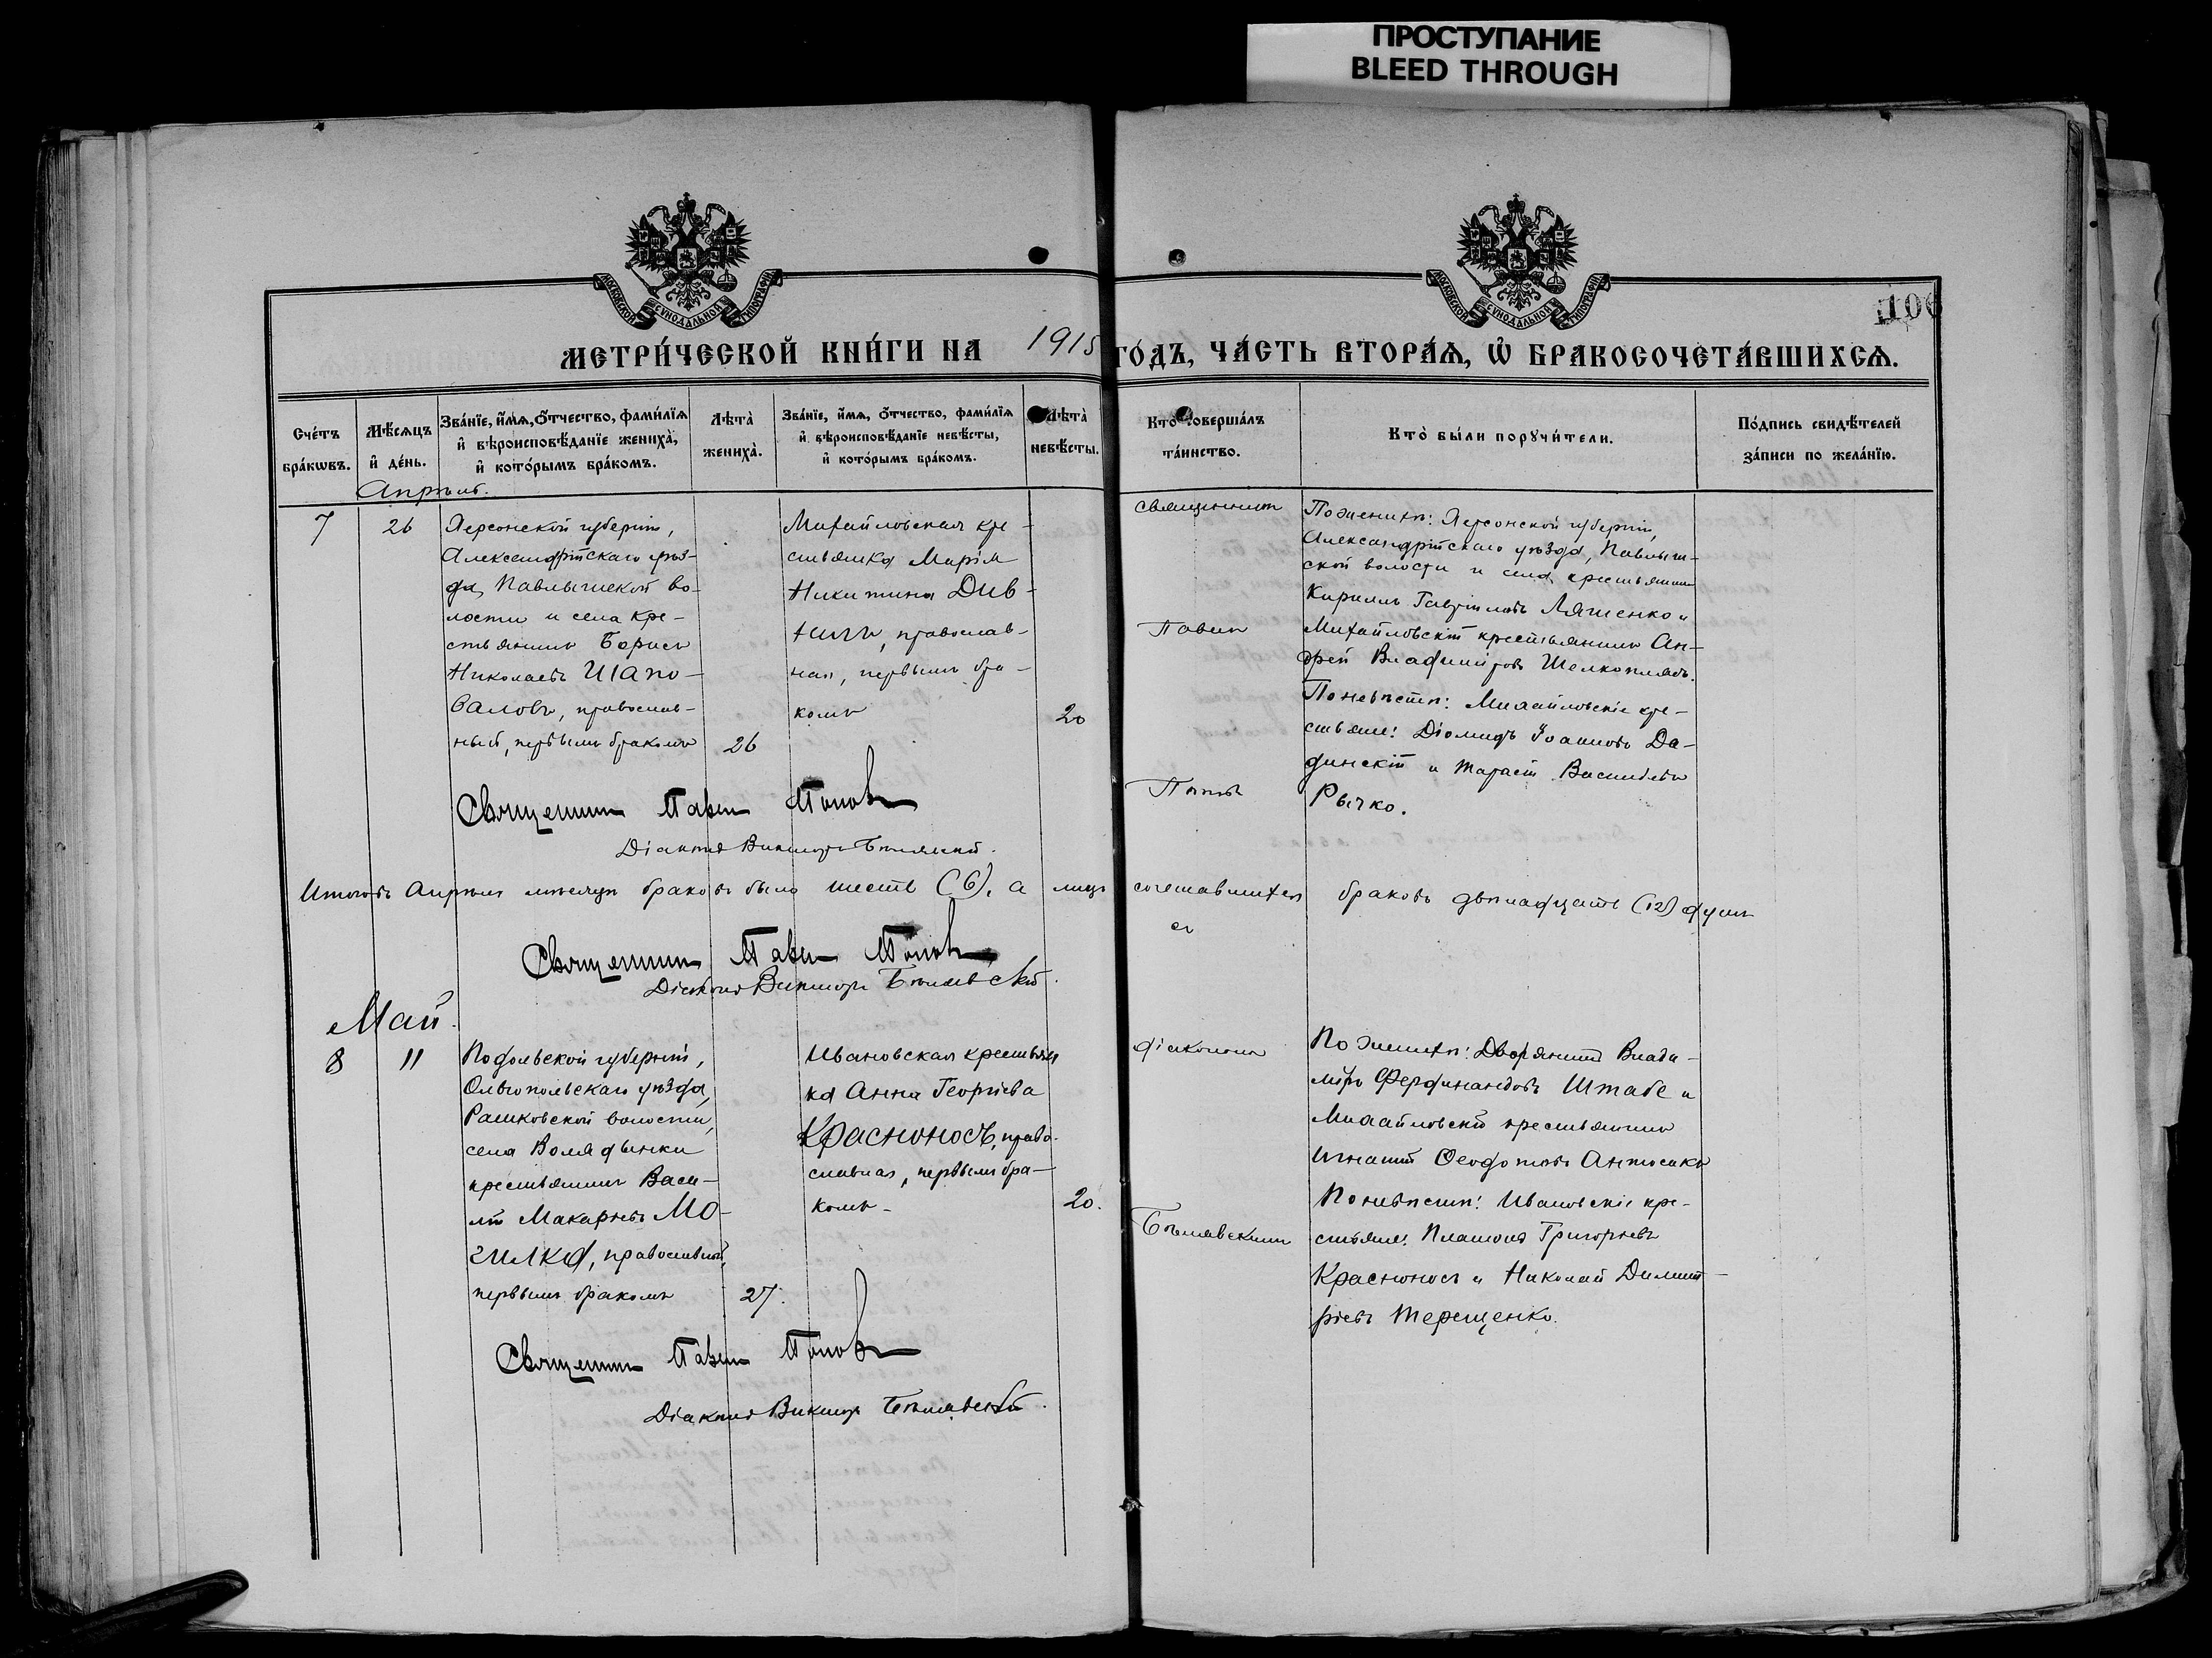 ПРОСТУПАНИЕ
BLEED THROUGH
МОСКОВСКОЙ СѴНОДАЛЬНОЙ ТИПОГРАФІИ
МОСКОВСКОЙ СѴНОДАЛЬНОЙ ТИПОГРАФІИ
106
МЕТРИ́ЧЕСКОЙ КНИ́ГИ НА 1915 ГО́ДЪ, ЧА́СТЬ ВТОРА́Ѧ, Ѿ БРАКОСОЧЕТА́ВШИХСѦ.
Сче́тъ
бра́кѡвъ.
Мѣ́сѧцъ
и҆ де́нь.
Зва́нїе, и҆́мѧ, ѻ҆́тчество, фами́лїѧ
и҆ вѣроисповѣ́данїе жениха̀,
и҆ кото́рымъ бра́комъ.
Лѣта̀
жениха̀.
Зва́нїе, и҆́мѧ, ѻ҆́тчество, фами́лїѧ
и҆ вѣроисповѣ́данїе невѣ́сты,
и҆ кото́рымъ бра́комъ.
Лѣта̀
невѣ́сты.
Кто̀ соверша́лъ
та́инство.
Кто̀ бы́ли порꙋчи́тели.
По́дпись свидѣ́телей
за́писи по жела́нїю.
Апрѣль.
7
26
Херсонской губерніи,
Александрійскаго уѣз-
да, Павлышской во-
лости и села кре-
стьянинъ Борисъ
Николаевъ Шапо-
валовъ, православ-
ный, первымъ бракомъ
26
Михайловская кре-
стьянка Марія
Никитина Див-
ная, православ-
ная, первымъ бра-
комъ
20
Священникъ
Павелъ
Поповъ
По женихѣ: Херсонской губерніи,
Александрійскаго уѣзда, Павлыш-
ской волости и села крестьянинъ
Кириллъ Гавріиловъ Ляшенко и
Михайловскій крестьянинъ Ан-
дрей Владиміровъ Шелкоплясъ.
По невѣстѣ: Михайловскіе кре-
стьяне: Діомидъ Іоанновъ
и Тарасій Васильевъ
Рычко.
Священникъ Павелъ Поповъ
Діаконъ Викторъ Бѣлявскій.
Итого въ Апрѣлѣ мѣсяцѣ браковъ было шесть (6), а лицъ сочетавшихся браковъ двѣнадцать (12) душъ
Священникъ Павелъ Поповъ
Діаконъ Викторъ Бѣлявскій.
Май.
8
11
Подольской губерніи,
Ольгопольскаго уѣзда,
Рашковской волости,
села Волядынки
крестьянинъ Васи-
лій Макаріевъ Мо-
гилка, православный,
первымъ бракомъ
27.
Ивановская крестьян
ка Анна Георгіева
Красноносъ, право-
славная, первымъ бра-
комъ
20.
діакономъ
Бѣлявскимъ
По женихѣ: Дворянинъ Влади-
міръ Фердинандовъ Штабе и
Михайловскій крестьянинъ
Игнатій Ѳеодотовъ
По невѣстѣ: Ивановскіе кре-
стьяне: Платонъ Григорьевъ
Красноносъ и Николай Димит-
ріевъ Терещенко.
Священникъ Павелъ Поповъ
Діаконъ Викторъ Бѣлявскій.